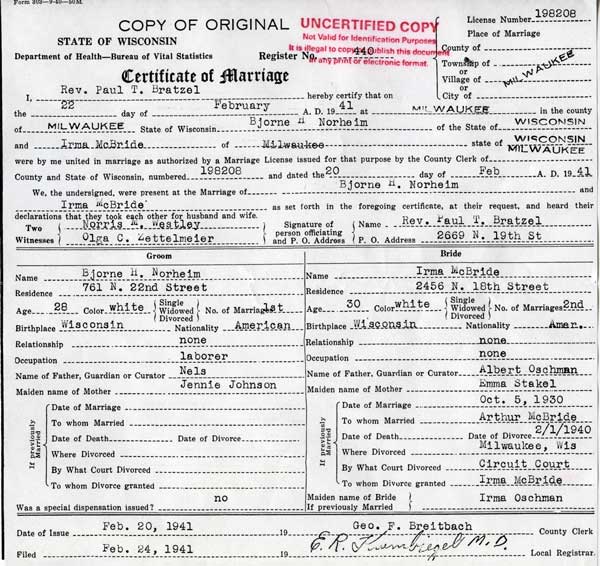 Form 802—9-40—50M.
COPY OF ORIGINAL
UNCERTIFIED COPY
Not Valid for Identification Purposes
It is illegal to copy or publish this document
in any print or electronic format.
License Number 198208
STATE OF WISCONSIN
Department of Health—Bureau of Vital Statistics
Register No. 440
Place of Marriage
County of
Township of
or
Village of
or
City of
MILWAUKEE
Certificate of Marriage
I, Rev. Paul T. Bratzel hereby certify that on
the 22 day of February A. D. 19 41 at MILWAUKEE in the county
of MILWAUKEE State of Wisconsin Bjorne H Norheim of the State of WISCONSIN
and Irma McBride of Milwaukee state of WISCONSIN
were by me united in marriage as authorized by a Marriage License issued for that purpose by the County Clerk of MILWAUKEE
County and State of Wisconsin, numbered 198208 and dated the 20 day of Feb A. D. 19 41
We, the undersigned, were present at the Marriage of Bjorne H. Norheim and
Irma McBride as set forth in the foregoing certificate, at their request, and heard their
declarations that they took each other for husband and wife.
Two Witnesses
Norris M. Westley
Olga C. Zettelmeier
Signature of person officiating and P. O. Address
Name Rev. Paul T. Bratzel
P. O. Address 2669 N. 19th St
Groom
Name Bjorne H. Norheim
Residence 761 N. 22nd Street
Age 28 Color white Single Widowed Divorced No. of Marriages 1st
Birthplace Wisconsin Nationality American
Relationship none
Occupation laborer
Name of Father, Guardian or Curator Nels
Maiden name of Mother Jennie Johnson
If previously Married
Date of Marriage
To whom Married
Date of Death Date of Divorce
Where Divorced
By What Court Divorced
To whom Divorce granted
Was a special dispensation issued? no
Bride
Name Irma McBride
Residence 2456 N. 18th Street
Age 30 Color white Single Widowed Divorced No. of Marriages 2nd
Birthplace Wisconsin Nationality Amer.
Relationship none
Occupation none
Name of Father, Guardian or Curator Albert Oschman
Maiden name of Mother Emma Stakel
If previously Married
Date of Marriage Oct. 5, 1930
To whom Married Arthur McBride
Date of Death Date of Divorce 2/1/1940
Where Divorced Milwaukee, Wis
By What Court Divorced Circuit Court
To whom Divorce granted Irma McBride
Maiden name of Bride If previously Married Irma Oschman
Date of Issue Feb. 20, 1941 19 Geo. F. Breitbach County Clerk
Filed Feb. 24, 1941 19 E. R. Krumbiegel M.D. Local Registrar.